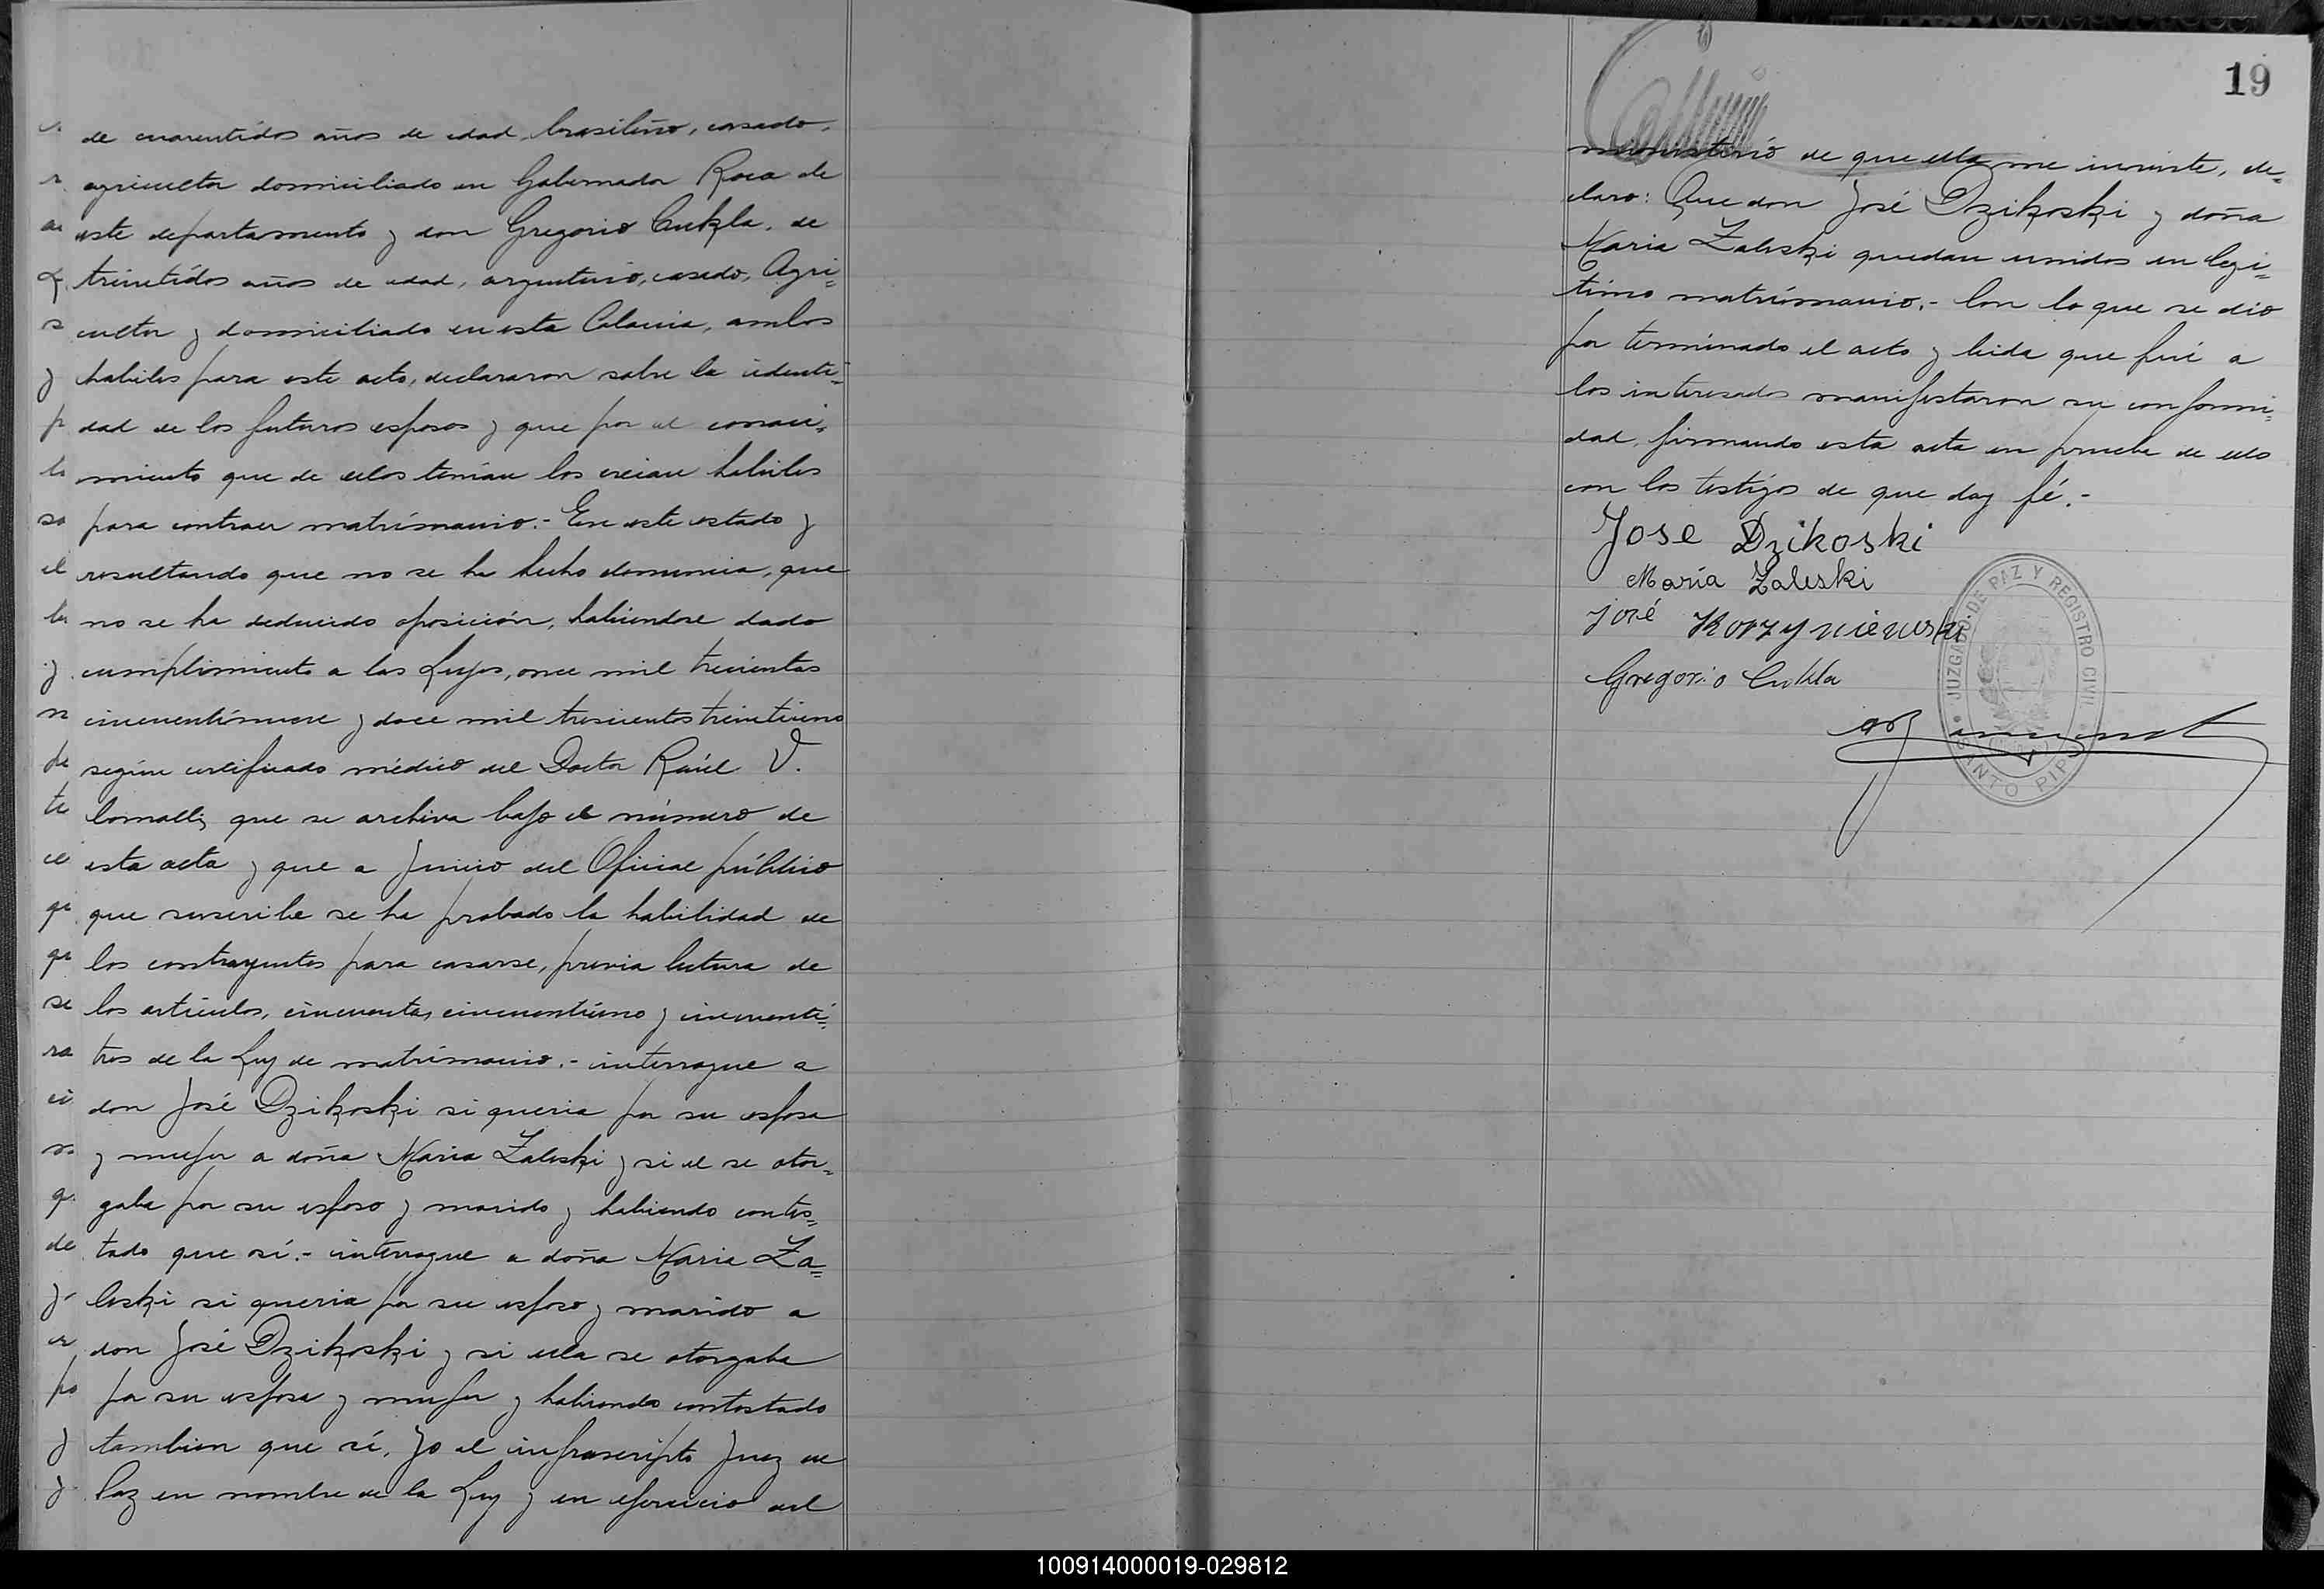 de cuarentidos años de edad, brasileño, casado,
agricultor domiciliado en Gobernador Roca de
este departamento y don Gregorio Cukla, de
treintidós años de edad, argentino, casado, Agri=
cultor y domiciliado en esta Colonia, ambos
habiles para este acto, declararon sobre la identi=
dad de los futuros esposos y que por el conoci=
miento que de ellos tenian los creian habiles
para contraer matrimonio.- En este estado y
resultando que no se ha hecho denuncia, que
no se ha deducido oposición, habiendose dado
cumplimiento a las Leyes, once mil trecientos
cincuentinueve y doce mil trescientos treintiuno
según certificado médico del Doctor Raúl V.
que se archiva bajo el número de
esta acta y que a Juicio del Oficial público
que suscribe se ha probado la habilidad de
los contrayentes para casarse, previa lectura de
los artículos, cincuenta, cincuentiuno y cincuenti=
tres de la Ley de matrimonio.- interrogue a
don José Dzikoski si queria por su esposa
y mujer a doña Maria Zaleski y si el se otor=
gaba por su esposo y marido y habiendo contes=
tado que sí.- interrogue a doña Maria Za=
leski si queria por su esposo y marido a
don José Dzikoski y si ella se otorgaba
por su esposa y mujer y habiendo contestado
tambien que sí, Yo el infrascripto Juez de
Paz en nombre de la Ley y en ejercicio del
19
ministerio de que ella me inviste, de=
claro: Que don José Dzikoski y doña
Maria Zaleski quedan unidos en legi=
timo matrimonio.- Con lo que se dió
por terminado el acto y leida que fué a
los interesados manifestaron su conformi=
dad, firmando esta acta en prueba de ello
con los testigos de que doy fé.-
Jose Dzikoski
María Zaleski
José Korzyniewski
Gregorio Cukla
JUZGADO DE PAZ Y REGISTRO CIVIL
SANTO PIPO
100914000019-029812